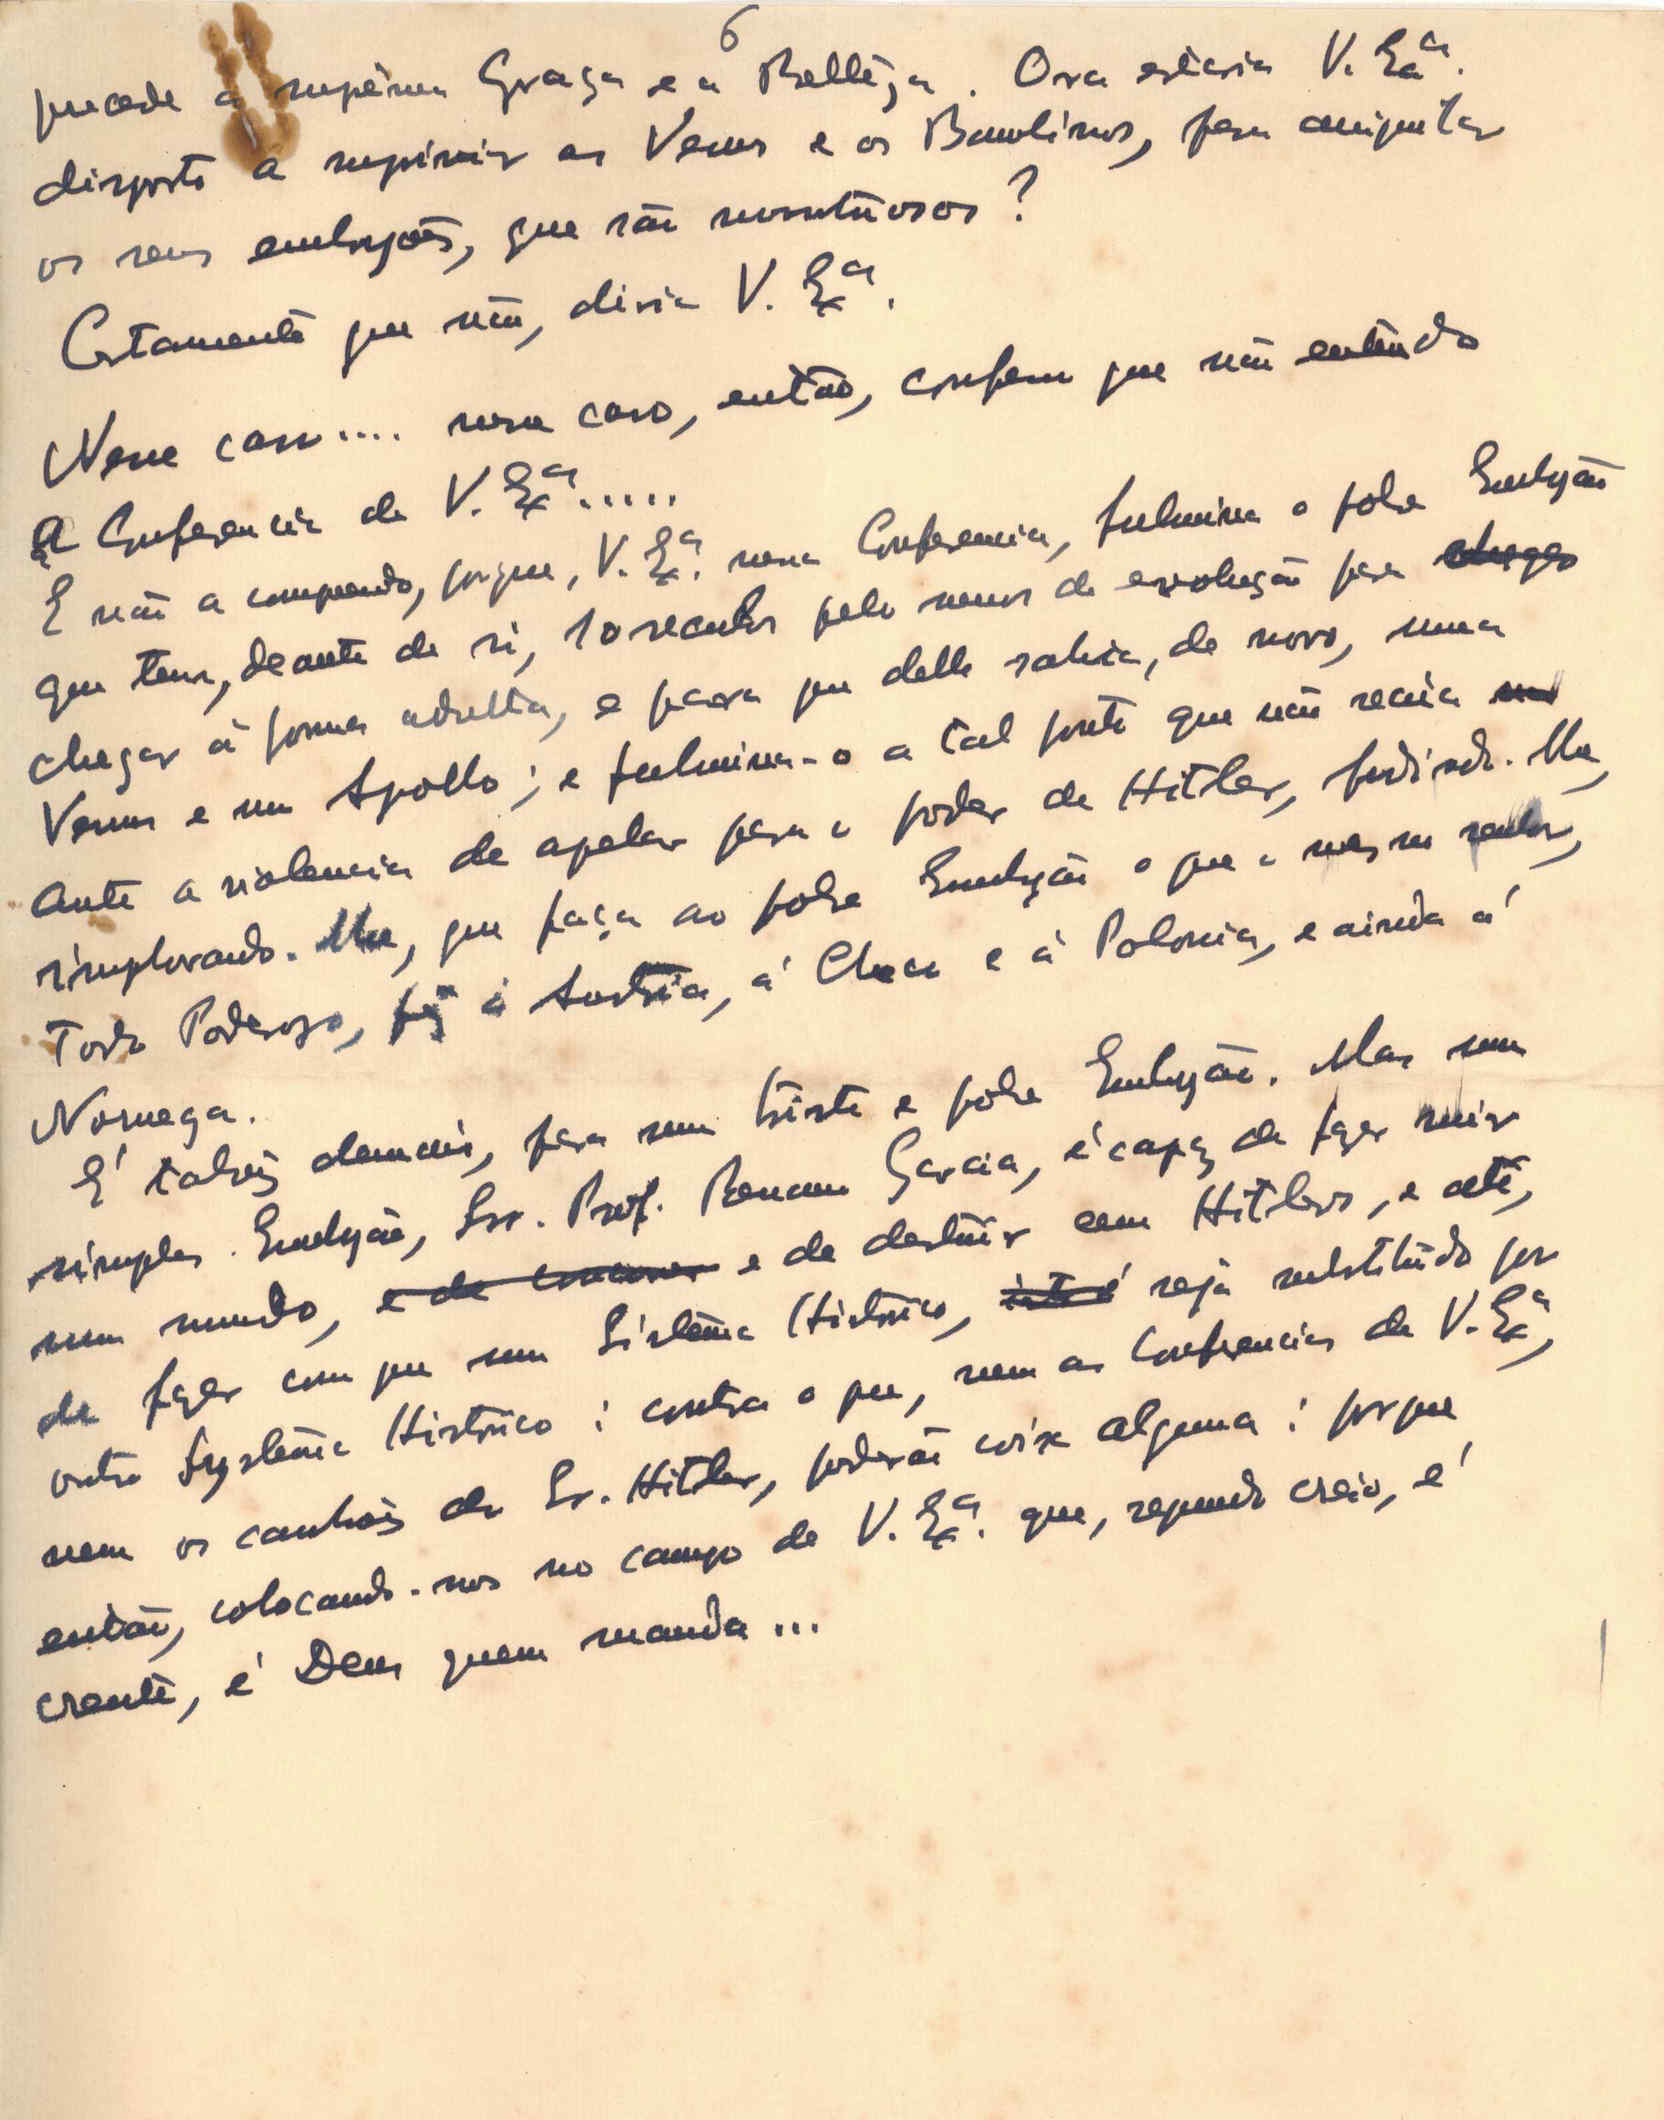 6
precede a suprêma Graça e a Bellêza. Ora estaria V. Exª.
disposto a suprimir as Venus e os Bambinos, para amputar
os seus embryões, que são monstruosos?
Certamente que não, diria V. Exª.
Nesse caso.... nesse caso, então, confesso que não entendo
a Conferencia de V. Exª.....
E não a comprendo, porque, V. Exª. nessa Conferencia, fulmina o pobre Embryão
que tem, deante de si, 10 seculos pelo menos de evolução para chegar
chegar á forma adulta, e para que delle saía, de novo, uma
Venus e um Apollo; e fulmina-o a tal ponto que não receia
ante a violencia de apelar para o poder de Hitler, pedindo-lhe,
implorando-lhe, que faça ao pobre Embryão o que o mesmo senhor,
Todo Poderoso, fez á Austria, á Checa e á Polonia, e ainda á
Noruega.
É talvez demais, para um triste e pobre Embryão. Mas um
simples Embryão, Snr. Prof. Garcia, é capaz de fazer ruir
um mundo, e de e de destruir cem Hitlers, e até,
de fazer com que um Sistêma Histórico, isto é seja substituido por
outro Systêma Histórico: contra o que, nem as Conferencias de V. Exª,
nem os canhões do Sr. Hitler, poderão coisa alguma: porque
então, colocando-nos no campo de V. Exª. que, segundo creio, é
crente, é Deus quem manda...